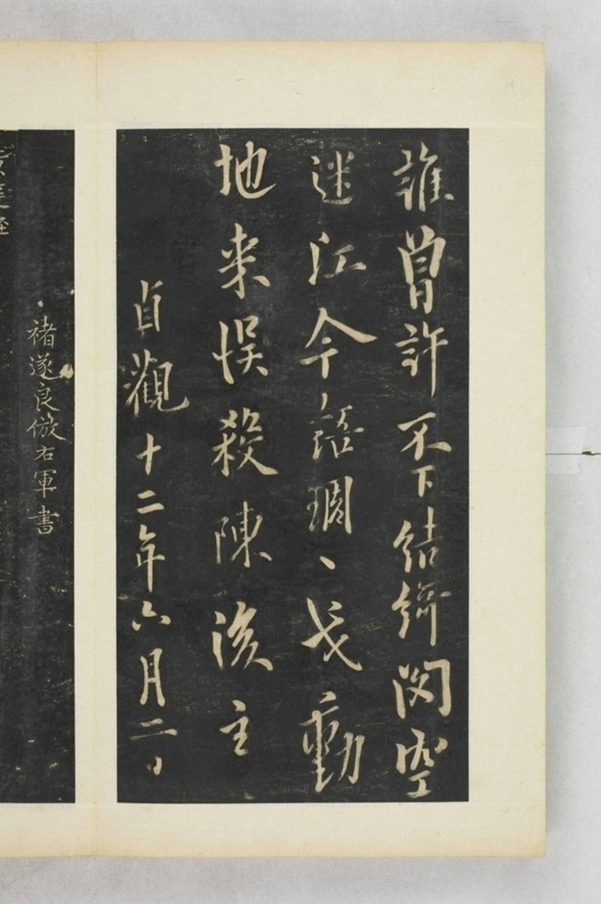 誰曾許不下結綺閣空
迷江令語琱〻長動
地来悮殺陳後主
貞觀十二年六月二日
褚遂良倣右軍書